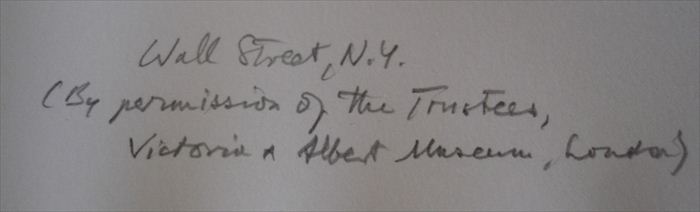 Wall Street, N.Y.
(By permission of the Trustees,
Victoria & Albert Museum, London)